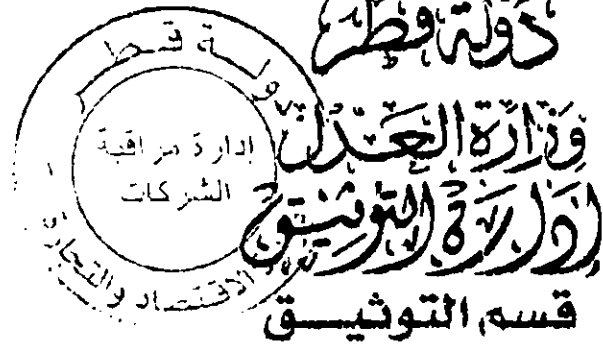 دولة قطر
وزارة العدل
إدارة التوثيق
قسم التوثيق
دولة قطر
إدارة مراقبة
الشركات
الاقتصاد والتجارة